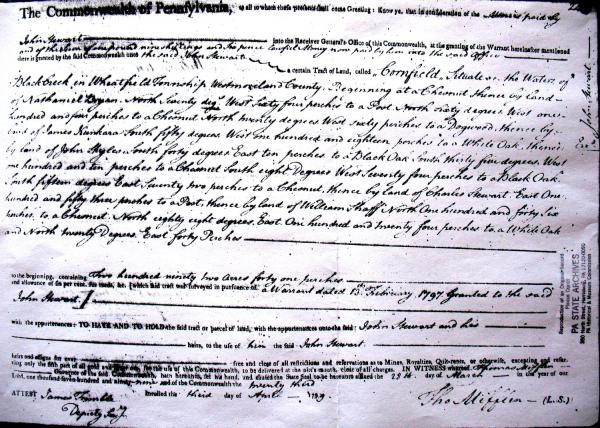 The Commonwealth of Pennsylvania, to all to whom these presents shall come Greeting: Know ye, that in consideration of the Monies paid by
John Stewart into the Receiver General's Office of this Commonwealth, at the granting of the Warrant hereinafter mentioned
and of the sum of four pound nine shillings and six pence lawful Money now paid by him into the said Office
there is granted by the said Commonwealth unto the said John Stewart
a certain Tract of Land, called "Cornfield, Situate on the Waters of
Black Creek in Wheatfield Township Westmoreland County. Beginning at a Chesnut thence by land
of Nathaniel Bryan North Seventy deg West Sixty four perches to a Post North sixty degrees West one
hundred and four perches to a Chesnut North twenty degrees West Sixty perches to a Dogwood thence by
land of James South fifty degrees West One hundred and eighteen perches to a White Oak thence
by land of John South forty degrees East ten perches to a Black Oak South thirty five degrees West
one hundred and ten perches to a Chesnut South eight Degrees West Seventy four perches to a Black Oak
South fifteen degrees East Seventy two perches to a Chesnut, thence by land of Charles Stewart East One
hundred and fifty three perches to a Post, thence by land of William North One hundred and forty six
perches to a Chesnut North eighty eight degrees East One hundred and twenty four perches to a White Oak
and North twenty Degrees East forty Perches
to the beginning, containing Two hundred ninety two acres forty one perches
and allowance of six per cent. for roads, &c. [which said tract was surveyed in pursuance of a Warrant dated 13th February 1797 Granted to the said
John Stewart]
with the appurtenances: TO HAVE AND TO HOLD the said tract or parcel of land, with the appurtenances unto the said John Stewart and his
heirs, to the use of him the said John Stewart
heirs and assigns for ever, free and clear of all restrictions and reservations as to Mines, Royalties, Quit-rents, or otherwise, excepting and reserving
only the fifth part of all gold and silver ore, for the use of this Commonwealth, to be delivered at the pit's mouth, clear of all charges. IN WITNESS whereof Thomas Mifflin
Governor of the said Commonwealth, hath hereunto set his hand, and caused the State Seal to be hereunto affixed the 23th day of March in the year of our
Lord, one thousand seven hundred and ninety nine and of the Commonwealth the twenty third
ATTEST James Trimble Enrolled the third day of April 1799
Deputy Secy.
Tho Mifflin (L.S.)
John Stewart
PA STATE ARCHIVES